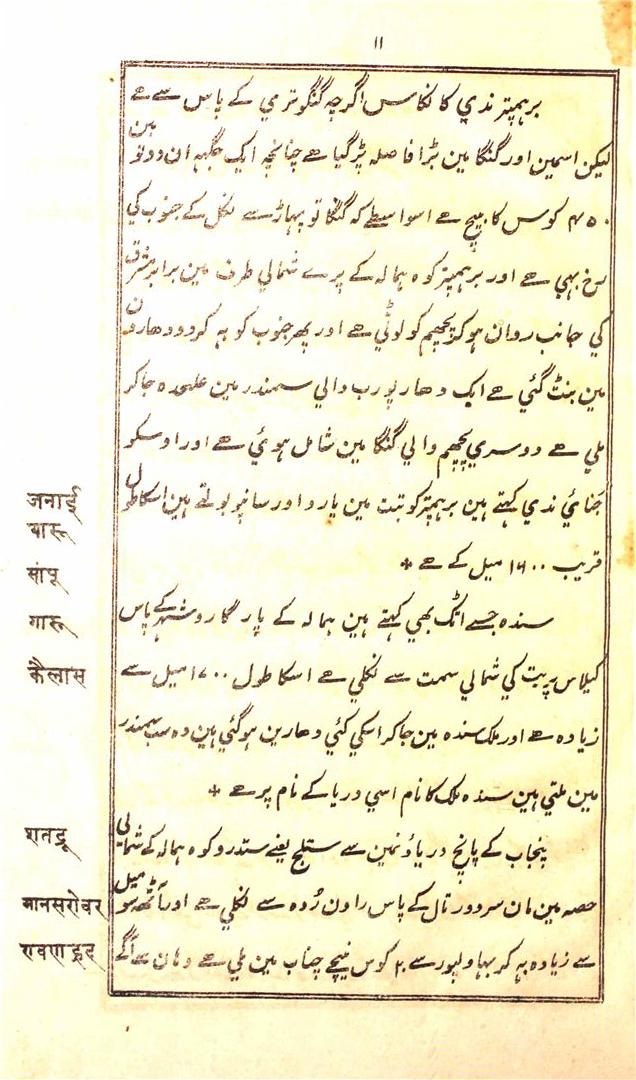 ۱۱
برہمپتر ندي کا نکاس اگرچہ گنگوتري کے پاس سے ہے
لیکن اسمین اور گنگا مین بڑا فاصلہ پڑ گیا ہے چنانچہ ایک جگہہ ان دونون
۴۵۰ کوس کا بیچ ہے اسواسطے کہ گنگا تو پہاڑ سے نکل کے جنوب کي
رخ بہي ہے اور برہمپتر کوہ ہمالہ کے پرے شمالي طرف مین برابر مشرق
کي جانب روان ہوکر پچھم کو لوٹي ہے اور پھر جنوب کو بہ کر دو دھارون
مین بنٹ گئي ہے ایک دھار پورب والي سمندر مین علحدہ جا کر
ملي ہے دوسري پچھم والي گنگا مین شامل ہوئي ہے اور اوسکو
جنائي ندي کہتے ہین برہمپتر کو تبت مین یارو اور سانپو بولتے ہین اسکا طول
जनाई
यारू
قریب ۱۶۰۰ میل کے ہے +
सांपू
سندہ جسے اٹک بھي کہتے ہین ہمالہ کے پار گارو شہر کے پاس
गारू
کیلاس پربت کي شمالي سمت سے نکلي ہے اسکا طول ۱۷۰۰ میل سے
कैलास
زیادہ ہے اور ملک سندہ مین جا کر اسکي کئي دھارین ہو گئي ہین وہ سب سمندر
مین ملتي ہین سندہ ملک کا نام اسي دریا کے نام پر ہے +
پنجاب کے پانچ دریاؤنمین سے ستلج یعنے ستدرو کوہ ہمالہ کے شمالي
शतद्रू
حصہ مین مان سرودر تال کے پاس راون رُدہ سے نکلي ہے اور آٹھہ سو میل
मानसरोवर
سے زیادہ بہ کر بہاولپور سے ۲۰ کوس نیچے چناب مین ملي ہے وہان سے آگے
रावणह्रद